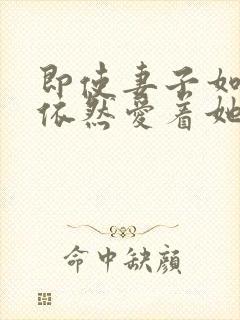 即使妻子如
依然爱着她
命中缺颜